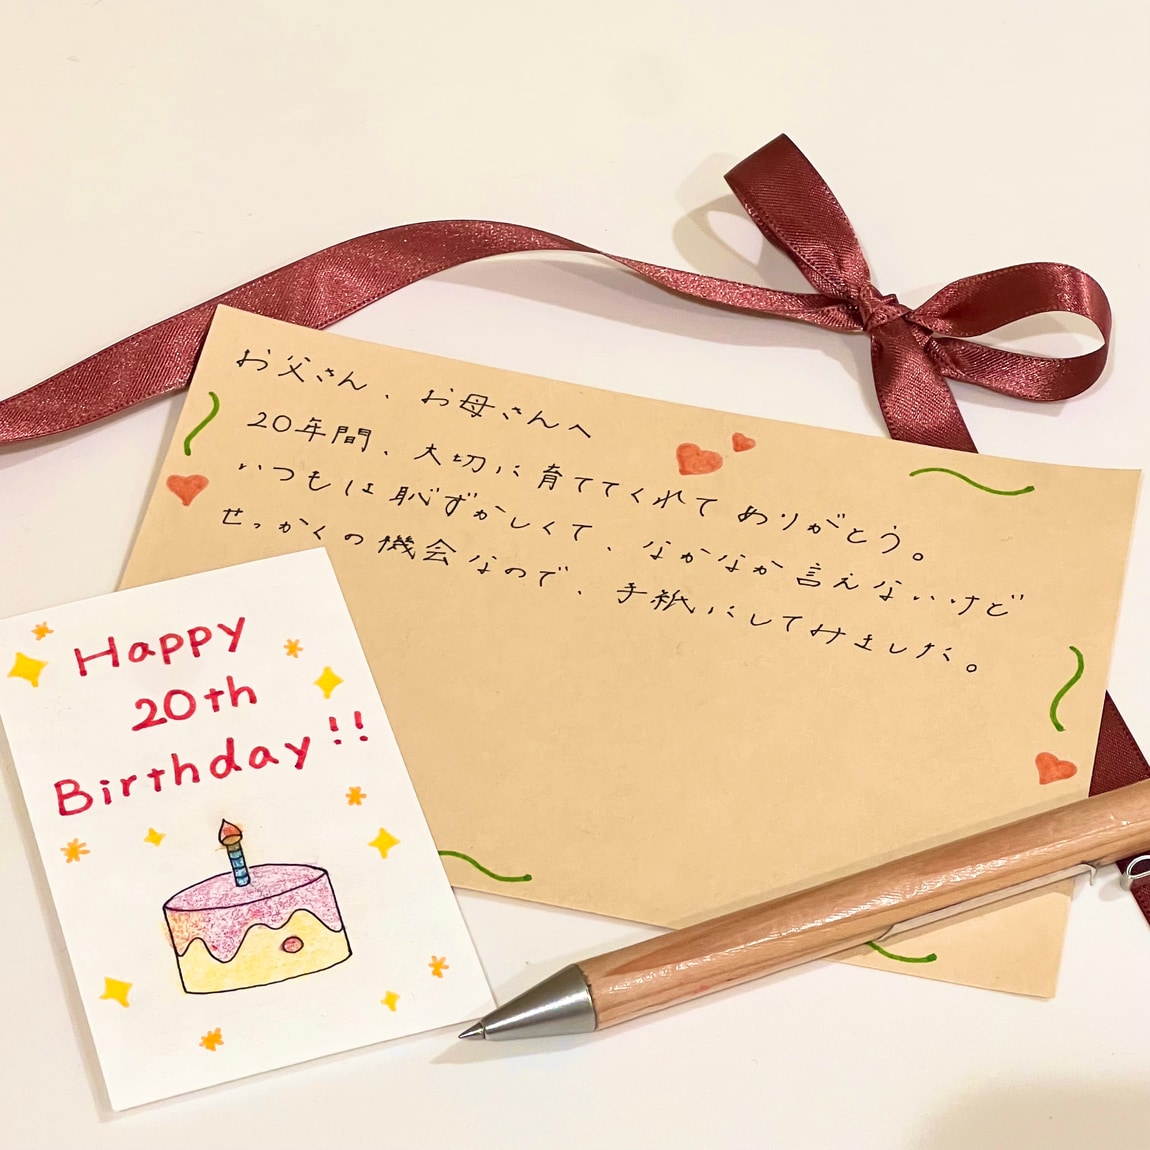 お父さん、お母さんへ
20年間、大切に育ててくれてありがとう。
いつもは恥ずかしくて、なかなか言えないけど
せっかくの機会なので、手紙にしてみました。
Happy
20th
Birthday!!